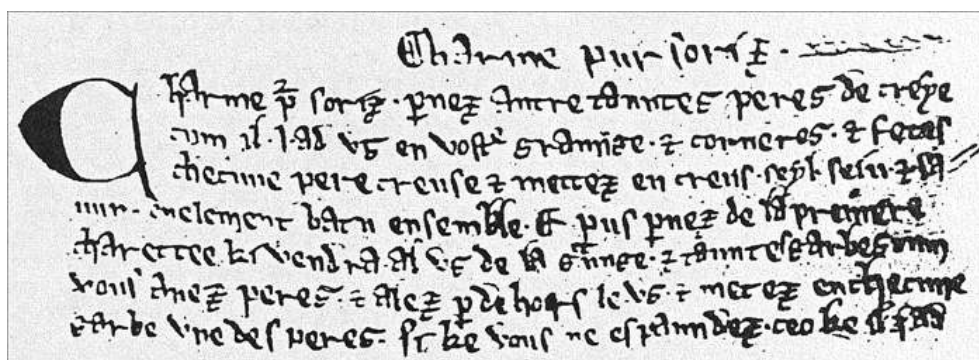 Charme pur soriz.
Charme pr soriz. pnez autretauntes peres de creye
cum il i ad us en vostre graunge. & corneres. & fetes
checune pere creuse & mettez en creus. seyl. sein. & sa
uelement batu ensemble. E pus pnez de la premere
charettee ke vendra al us de la gnge. & tauntes garbes cum
vous avez peres. & alez p dehors le us. & metez en checune
garbe une des peres. si ke vous ne espaundez. ceo ke il ad